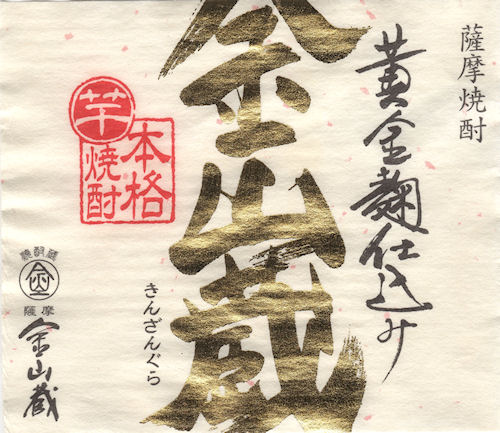 薩摩焼酎
黄金麹仕込み
金山蔵
きんざんぐら
芋
本格
焼酎
焼酎蔵
金
薩摩
金山蔵